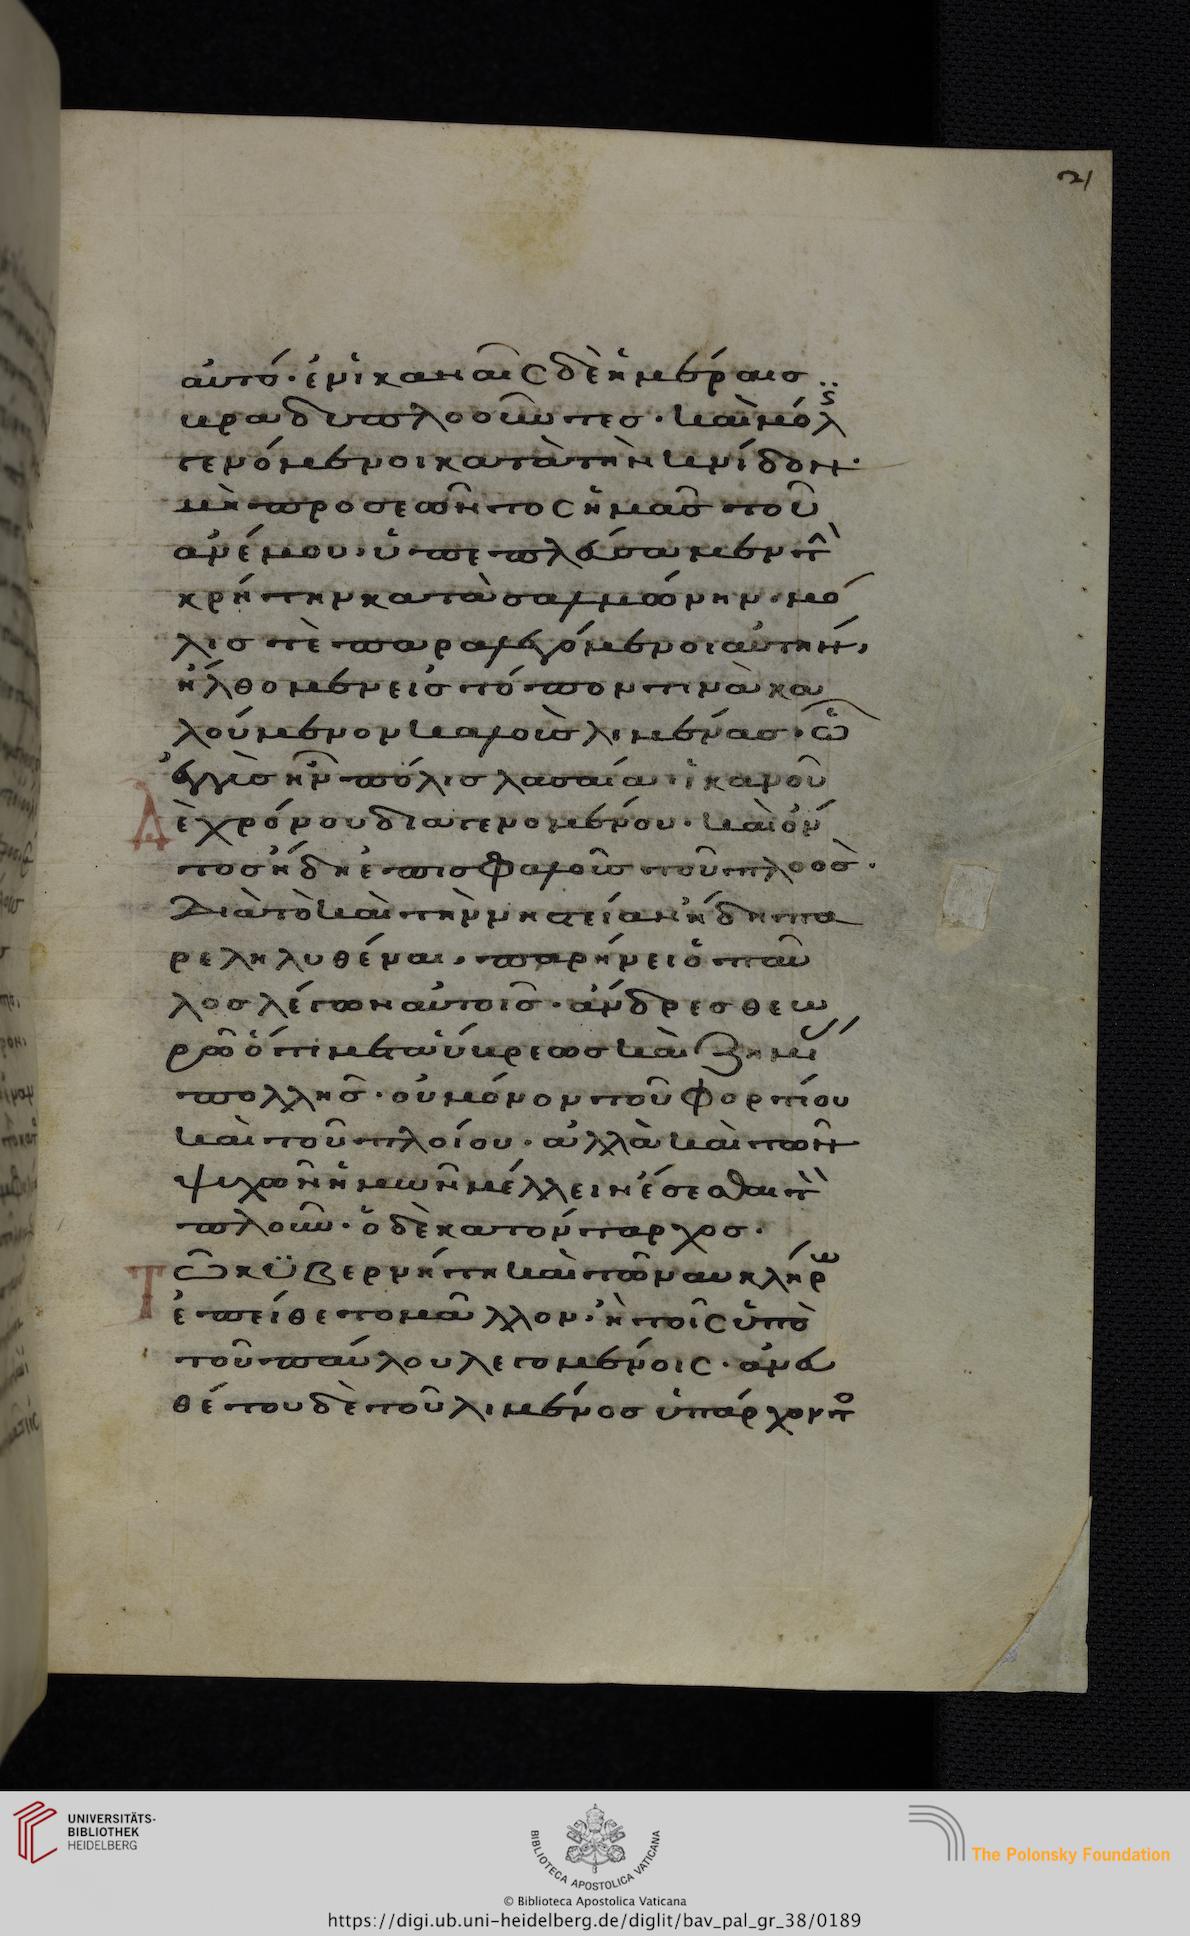 21
αὐτό· ἐν ἱκαναῖς δὲ ἡμέραισ
βραδυπλοοῦντεσ· καὶ μόλ
γενόμενοι κατὰ τὴν κνίδον·
μὴ προσεῶντος ἡμᾶσ τοῦ
ἀνέμου· ὑπεπλεύσαμεν τ
κρήτην κατὰ σαλμώνην· μό
λισ τὲ παραλεγόμενοι αὐτήν,
ἤλθομεν εἰσ τόπον τινὰ κα
λούμενον καλοὺσ λιμένασ· ὧ
ἐγγὺσ ἦν πόλισ λασαία· ἱκανοῦ
Δὲ χρόνου διαγενομένου· καὶ ὄν
τοσ ἤδη ἐπισφαλοῦσ τοῦ πλοόσ·
διὰ τὸ καὶ τὴν νηστείαν ἤδη πα
ρεληλυθέναι, παρήνει ὁ παῦ
λοσ λέγων αὐτοῖσ· ἄνδρεσ θεω
ρῶ ὅτι μετὰ ὕβρεωσ καὶ ζημί
πολλῆσ· οὐ μόνον τοῦ φορτίου
καὶ τοῦ πλοίου· ἀλλὰ καὶ τῶν
ψυχῶν ἡμῶν μέλλειν ἔσεσθαι τ
πλοῦν· ὁ δὲ κατοντάρχοσ·
Τῶ κϋβερνήτη καὶ τῶ ναυκλήρω
ἐπείθετο μᾶλλον· ἢ τοῖς ὑπὸ
τοῦ παύλου λεγομένοις· ἀνευ
θέτου δὲ τοῦ λιμένοσ ὑπάρχοντο
UNIVERSITÄTS-
BIBLIOTHEK
HEIDELBERG
BIBLIOTECA APOSTOLICA VATICANA
The Polonsky Foundation
© Biblioteca Apostolica Vaticana
https://digi.ub.uni-heidelberg.de/diglit/bav_pal_gr_38/0189